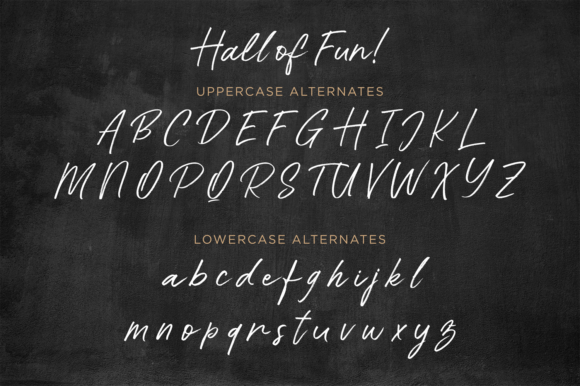 Hall of Fun!
UPPERCASE ALTERNATES
A B C D E F G H I J K L
M N O P Q R S T U V W X Y Z
LOWERCASE ALTERNATES
a b c d e f g h i j k l
m n o p q r s t u v w x y z